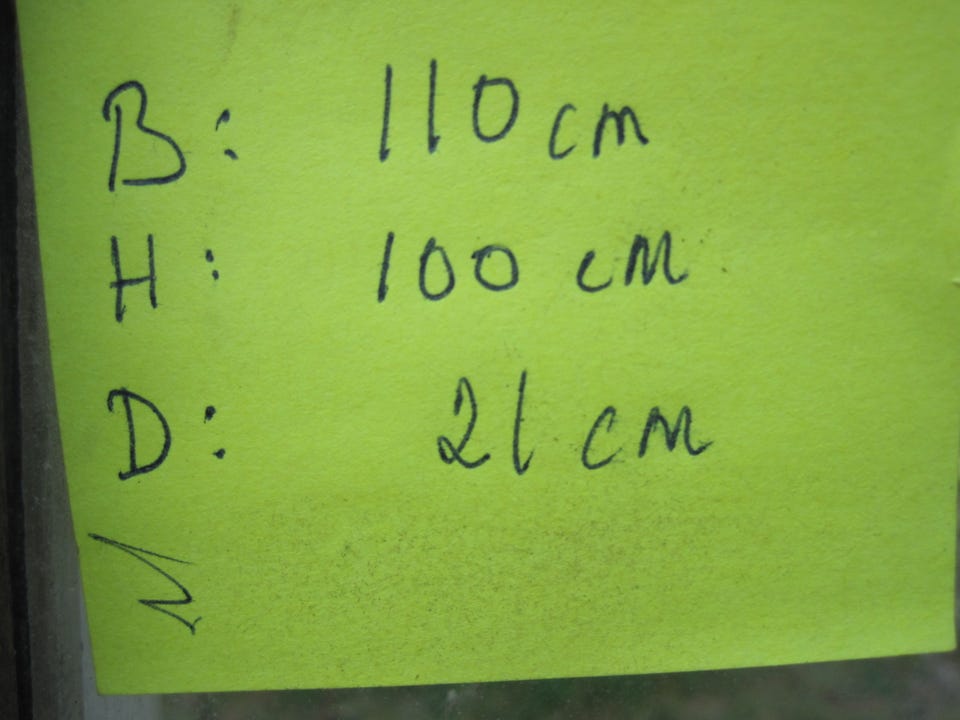 B: 110 cm
H: 100 cm
D: 21 cm